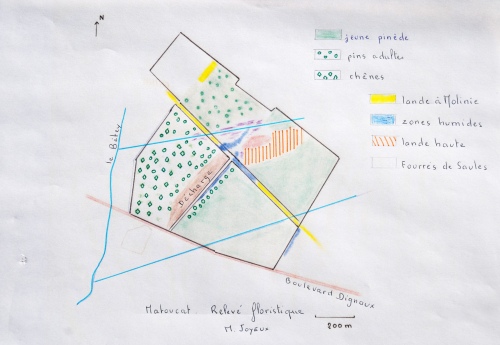 N
jeune pinède
pins adultes
chênes
lande à Molinie
zones humides
lande haute
Fourres de Saules
le Betey
Décharge
Boulevard Digneaux
Matoucat Relevé floristique
200m
M. Joyeux